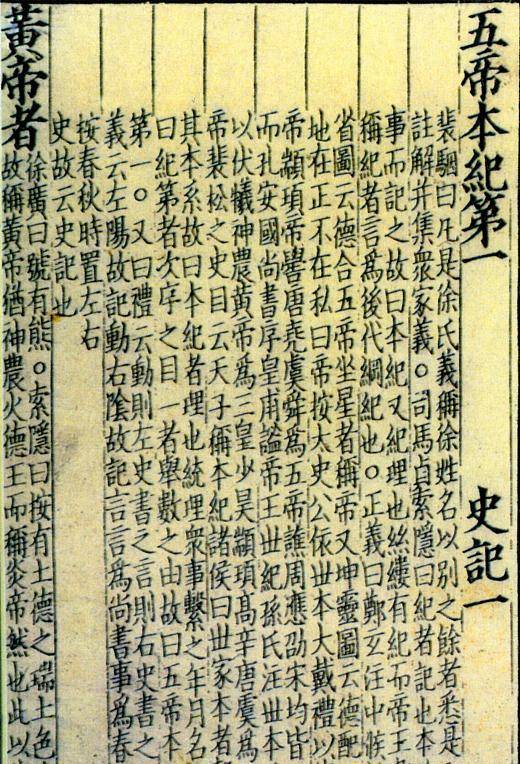 五帝本紀第一　史記一
裴駰曰凡是徐氏義稱徐姓名以別之餘者悉是
註解并集衆家義○司馬貞索隱曰紀者記也本
事而記之故曰本紀又紀理也絲縷有紀而帝王
稱紀者言爲後代綱紀也○正義曰鄭玄注中候
省圖云德合五帝坐星者稱帝又坤靈圖云德配
地在正不在私曰帝按太史公依丗本大戴禮以
帝顓頊帝嚳唐堯虞舜爲五帝譙周應劭宋均皆
而孔安國尚書序皇甫謐帝王丗紀孫氏注丗本
以伏犧神農黃帝爲三皇少昊顓頊高辛唐虞爲
帝裴松之史目云天子稱本紀諸侯曰丗家本者
其本系故曰本紀者理也統理衆事繫之年月名
曰紀第者次序之目一者舉數之由故曰五帝本
第一○又曰禮云動則左史書之言則右史書之
義云左陽故記動右陰故記言言爲尚書事爲春
按春秋時置左右
史故云史記也
黃帝者
徐廣曰號有熊○索隱曰按有土德之瑞土色
故稱黃帝猶神農火德王而稱炎帝然也此以